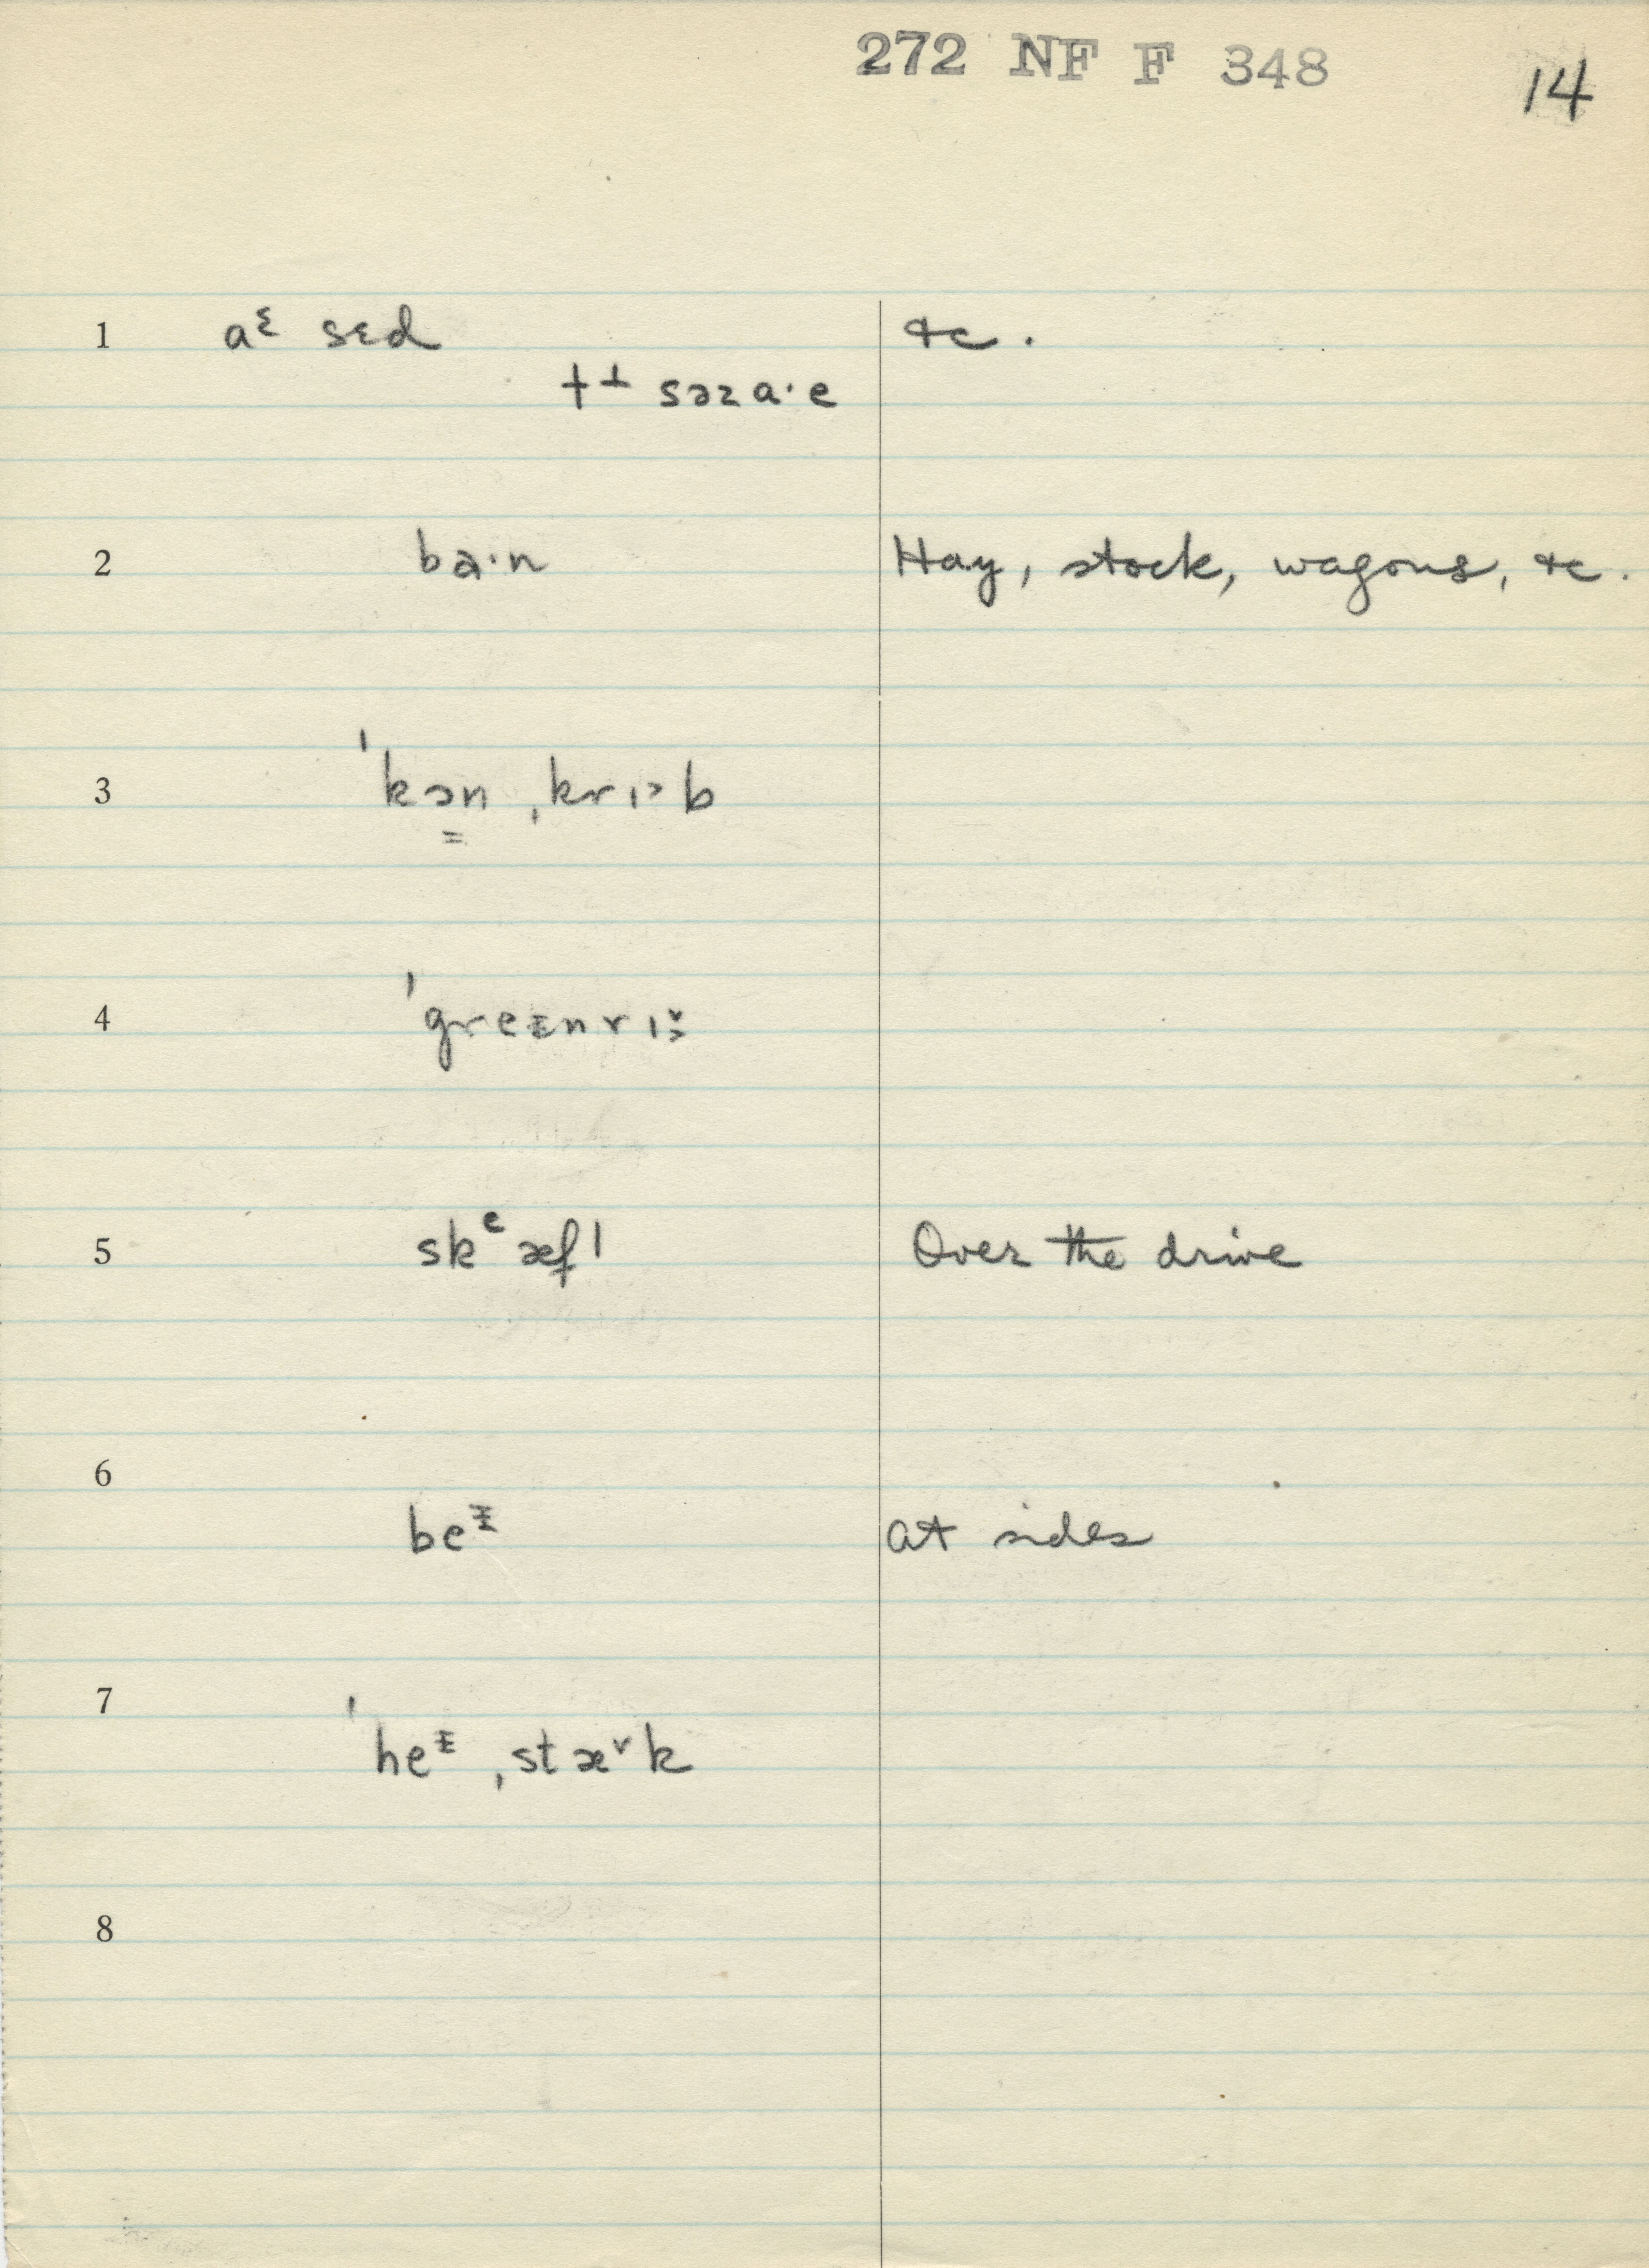 272 NF F 348
14
1 aᵋ sɛd &c.
t⊥ səza·e
2 ba·n Hay, stock, wagons, &c.
3 ˈkɔn ˌkrɪ˃b
4 ˈgreɪnrɪ
5 skᵉæfl̩ Over the drive
6 beᶤ at sides
7 ˈheᶤ ˌstæ˅k
8